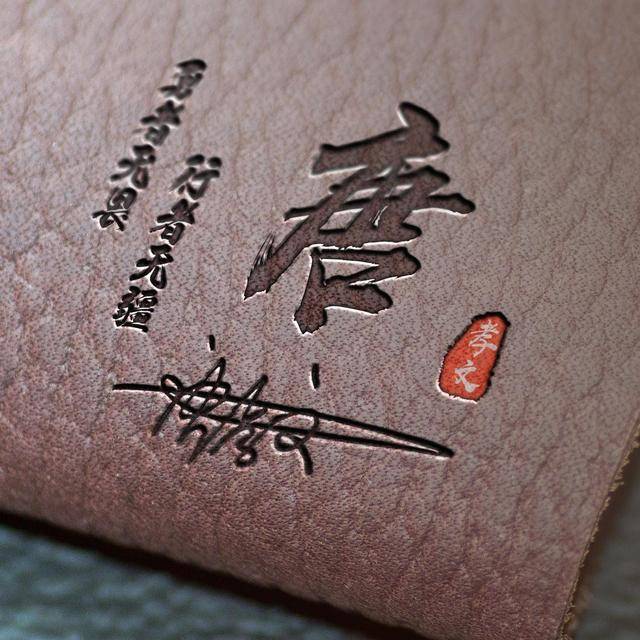 勇者无畏
行者无疆
唐
孝文